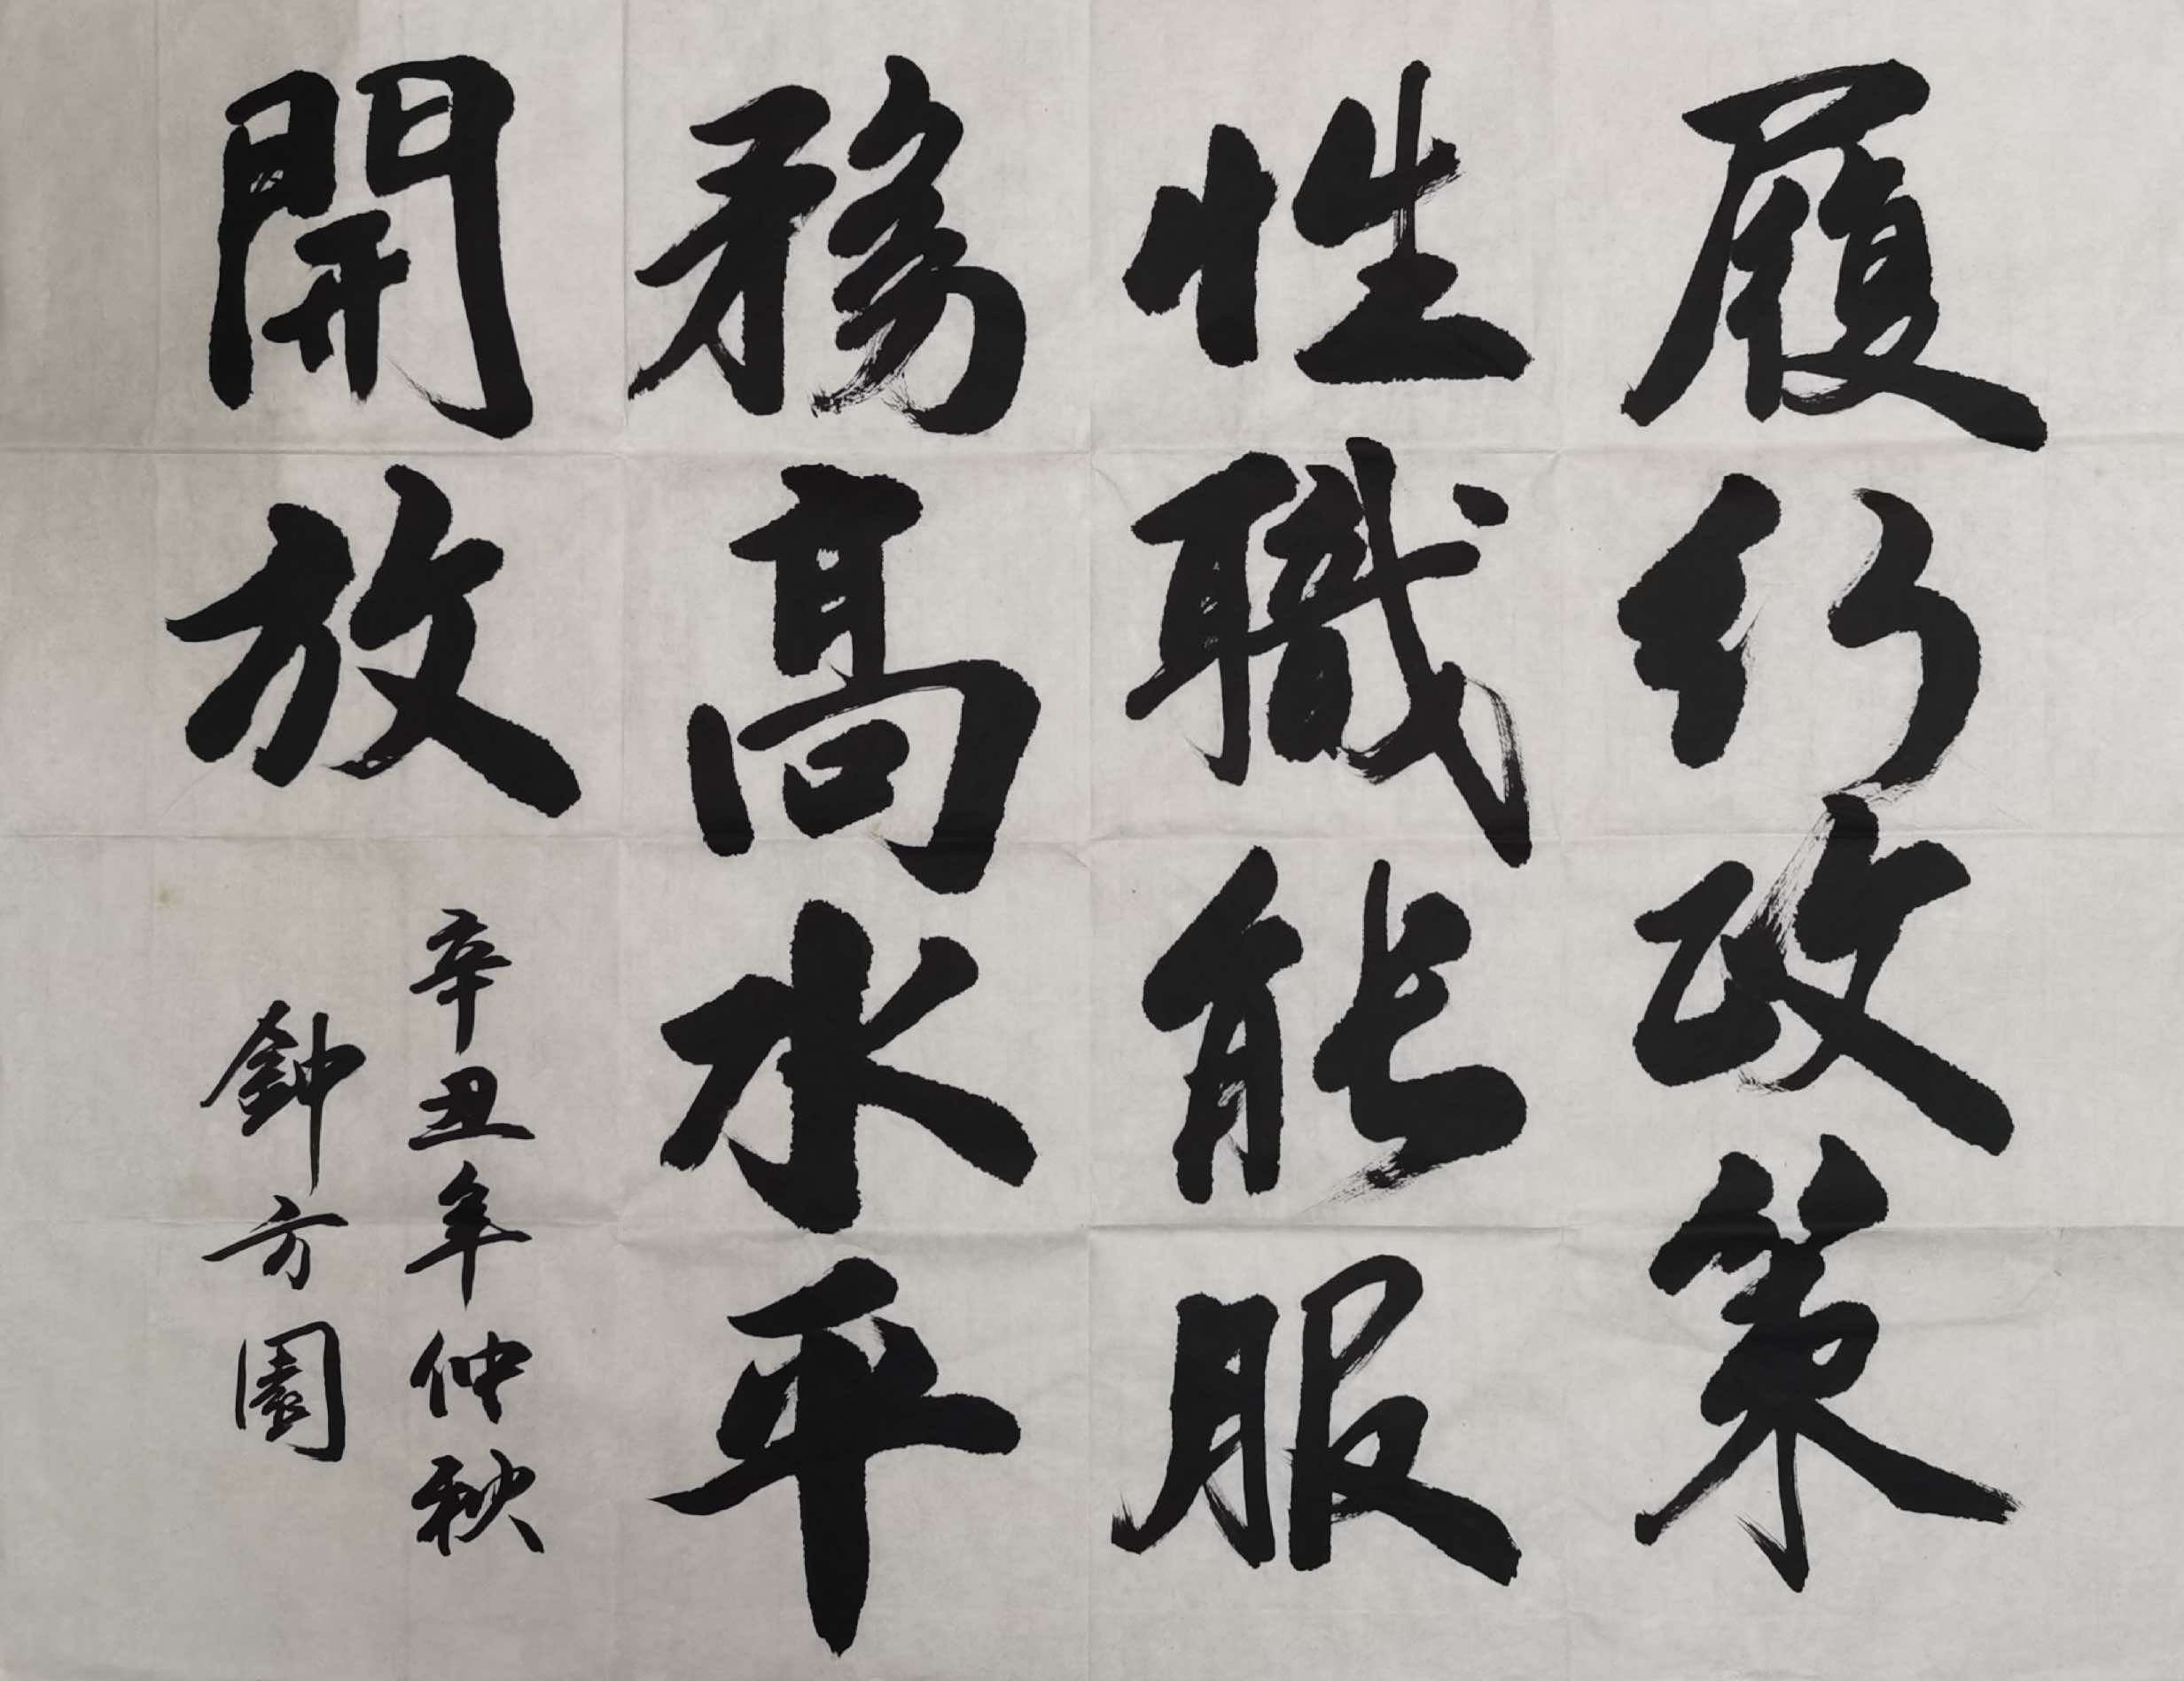 履行政策
性職能服
務高水平
開放
辛丑年仲秋
鈡方園